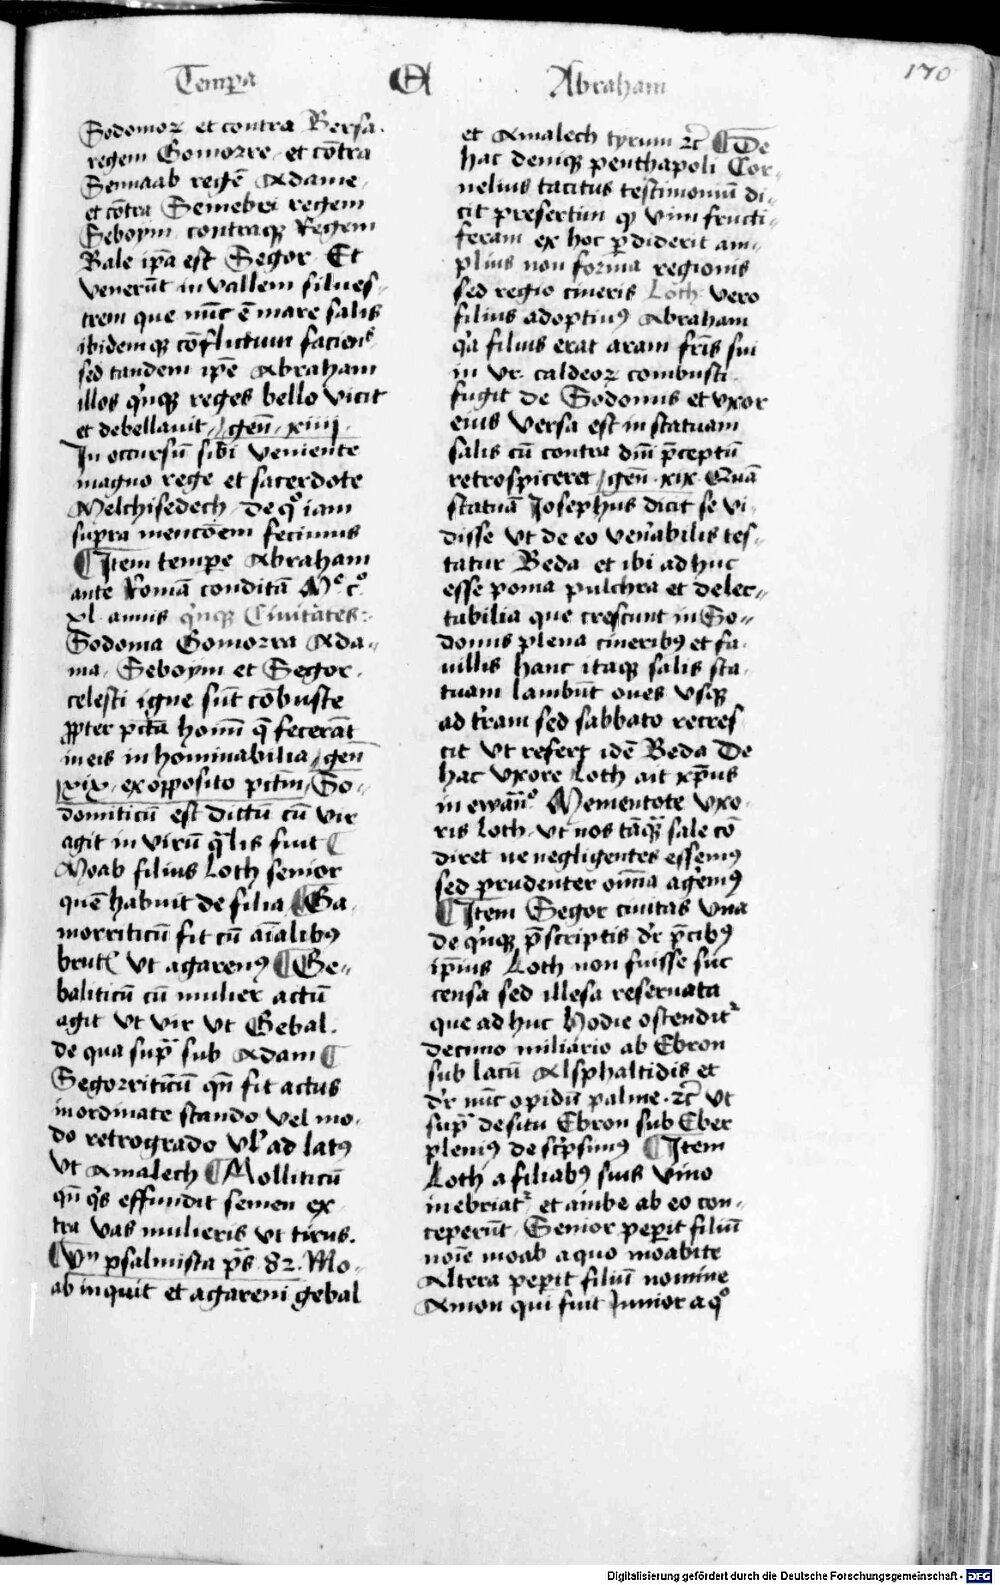 Tempera A Abraham 170
Sodomoꝝ et contra Bersa.
regem Gomorre et cōtra
Sennaab regē Adame,
et cōtra Semebri regem
Seboym contraqꝫ Regem
Bale ip̄a est Segor Et
venerūt in vallem silues-
trem que nūc ē mare salis
ibidemqꝫ cōflictum faciens
sed tandem ip̄e Abraham
illos qͥnqꝫ reges bello vicit
et debellauit, gen̄. xiiij.
In occursū sibi veniente
magno rege et sacerdote
Melchisedech. de qͦ iam
supra mencōem fecimus
¶ Item tempe Abraham
ante Romā conditā Mͦ. cͦ.
xl. annis qͥnqꝫ Ciuitates:
Sodoma Gomorra Ada-
ma, Seboym et Segor.
celesti igne sūt cōbuste
ꝓpter pctā homī q̄ fecerāt
in eis inhominabilia, gen̄
xix. ex opposito pctm̄, So-
domiticū est dictū cū vir
agit in virū qͣlis fuit ¶
Moab filius Loth senior
quē habuit de filia ¶ Ga-
morriticū fit cū aīalibꝰ
brut vt agarenꝰ ¶ Ge-
baliticū cū mulier actū
agit vt vir vt Gebal.
de qua supͣ sub Adam ¶
Segorriticū qn̄ fit actus
inordinate stando vel mo-
do retrogrado vl ad latꝰ
vt Amalech ¶ Molliticū
qn̄ qͥs effundit semen ex-
tra vas mulieris vt tirus.
¶ Vn̄ psalmista ps. 82. Mo-
ab inquit et agareni gebal
et Amalech tyrum ⁊c̄ ¶ De
hac deniqꝫ penthapoli Cor-
nelius tacitus testimoniū di-
cit presertim qꝫ vim fructi-
feram ex hoc ꝑdiderit am-
plius non forma regionis
sed regio cineris Loth vero
filius adoptiuꝰ Abraham
qͥa filius erat aram fr̄is sui
in vr. caldeoꝝ combusti
fugit de Sodomis et vxor
eius versa est in statuam
salis cū contra dnī p̄ceptū
retrospiceret, gen̄. xix. Quā
statuā Josephus dicit se vi-
disse vt de eo ven̄abilis tes-
tatur Beda et ibi ad huc
esse poma pulchra et delec-
tabilia que crescunt in So-
domis plena cineribꝰ et fa-
uillis hanc itaqꝫ salis sta-
tuam lambūt oues vsqꝫ
ad tr̄am sed sabbato recres-
cit vt refert idē Beda De
hac vxore Loth ait xp̄us
in ewān̄ͦ Mementote vxo-
ris Loth, vt nos tāqͣ sale cō-
diret ne negligentes essemꝰ
sed prudenter om̄ia agemꝰ
¶ Item Segor ciuitas vna
de qͥnqꝫ p̄scriptis dr̄ p̄cibꝰ
ip̄ius Loth non fuisse suc-
censa sed illesa reseruata
que ad huc hodie ostendit
decimo miliario ab Ebron
sub lacū Alsphaltidis et
dr̄ nūc opidū palme. ⁊c̄ vt
supͣ de situ Ebron sub Eber
pleniꝰ descripsimꝰ ¶ Item
Loth a filiabꝰ suis vino
inebriatͬ et ambe ab eo con-
ceperūt, Senior peꝑit filiū
noīe moab a quo moabite
Altera peꝑit filiū nomine
Amon qui fuit Junior a qͦ
Digitalisierung gefördert durch die Deutsche Forschungsgemeinschaft - DFG